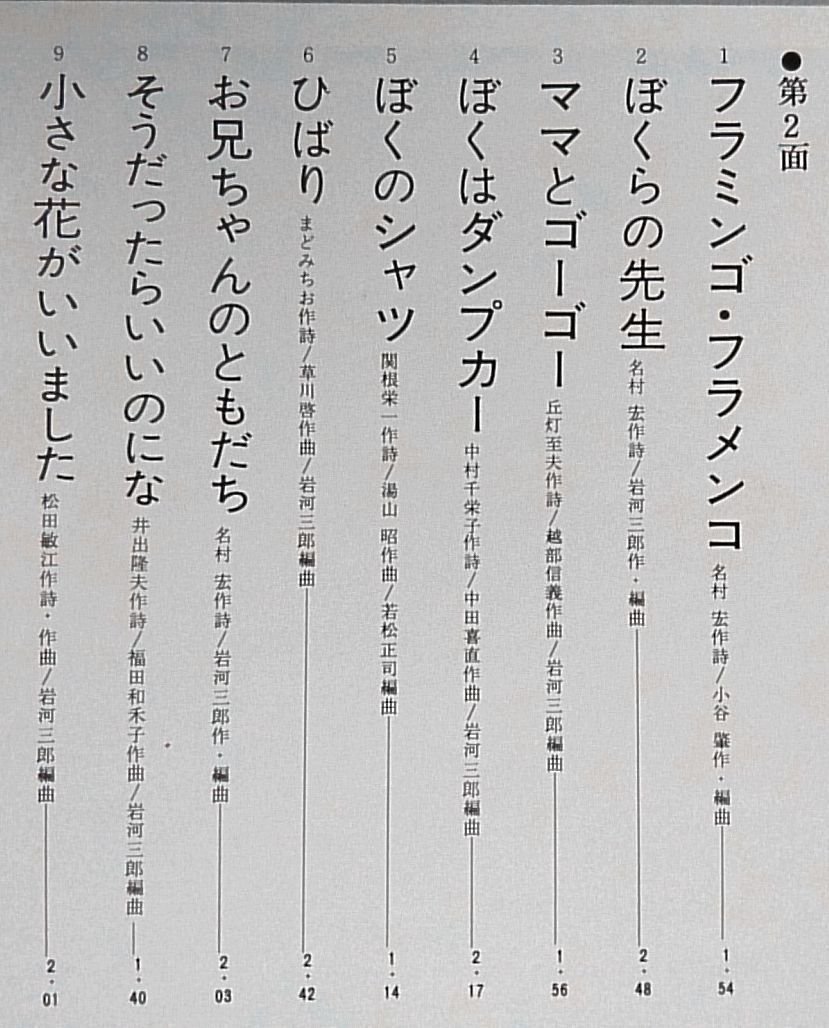 ●第2面
1 フラミンゴ・フラメンコ 名村 宏作詩/小谷 肇作・編曲 1・54
2 ぼくらの先生 名村 宏作詩/岩河三郎作・編曲 2・48
3 ママとゴーゴー 丘灯至夫作詩/越部信義作曲/岩河三郎編曲 1・56
4 ぼくはダンプカー 中村千栄子作詩/中田喜直作曲/岩河三郎編曲 2・17
5 ぼくのシャツ 関根栄一作詩/湯山 昭作曲/若松正司編曲 1・14
6 ひばり まどみちお作詩/草川啓作曲/岩河三郎編曲 2・42
7 お兄ちゃんのともだち 名村 宏作詩/岩河三郎作・編曲 2・03
8 そうだったらいいのにな 井出隆夫作詩/福田和禾子作曲/岩河三郎編曲 1・40
9 小さな花がいいました 松田敏江作詩・作曲/岩河三郎編曲 2・01